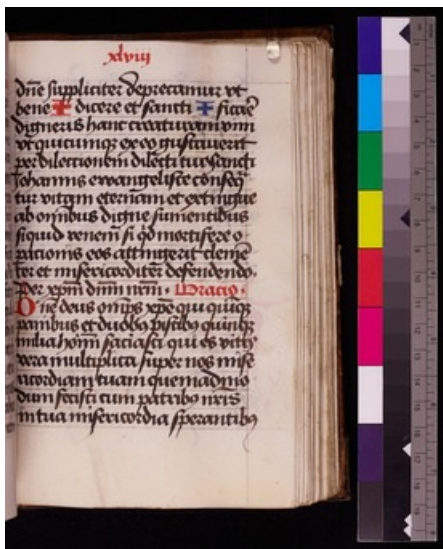 xlviij
dn̄e suppliciter deprecamur vt
bene ✠ dicere et sancti ✠ ficare
digneris hanc creaturam vini
vt quicumqꝫ ex eo gustauerit
per dilectionem dilecti tui sancti
Johannis ewangeliste conseq̄
tur vitam eternam et extingue
ab omnibus digne sumentibus
siquid veneni si qd mortifere o
pacionis eos attingerit clemē
ter et misericorditer defendendo.
Per xp̄m dn̄m nr̄m. Oracio.
Dn̄e deus om̄ps xp̄e qui quinqꝫ
panibus et duobꝫ piscibꝫ quinqꝫ
milia hom̄ saciasti qui es vitis
vera multiplica super nos mise
ricordiam tuam quemadmo
dum fecisti cum patribꝫ nr̄is
in tua misericordia sperantibꝫ